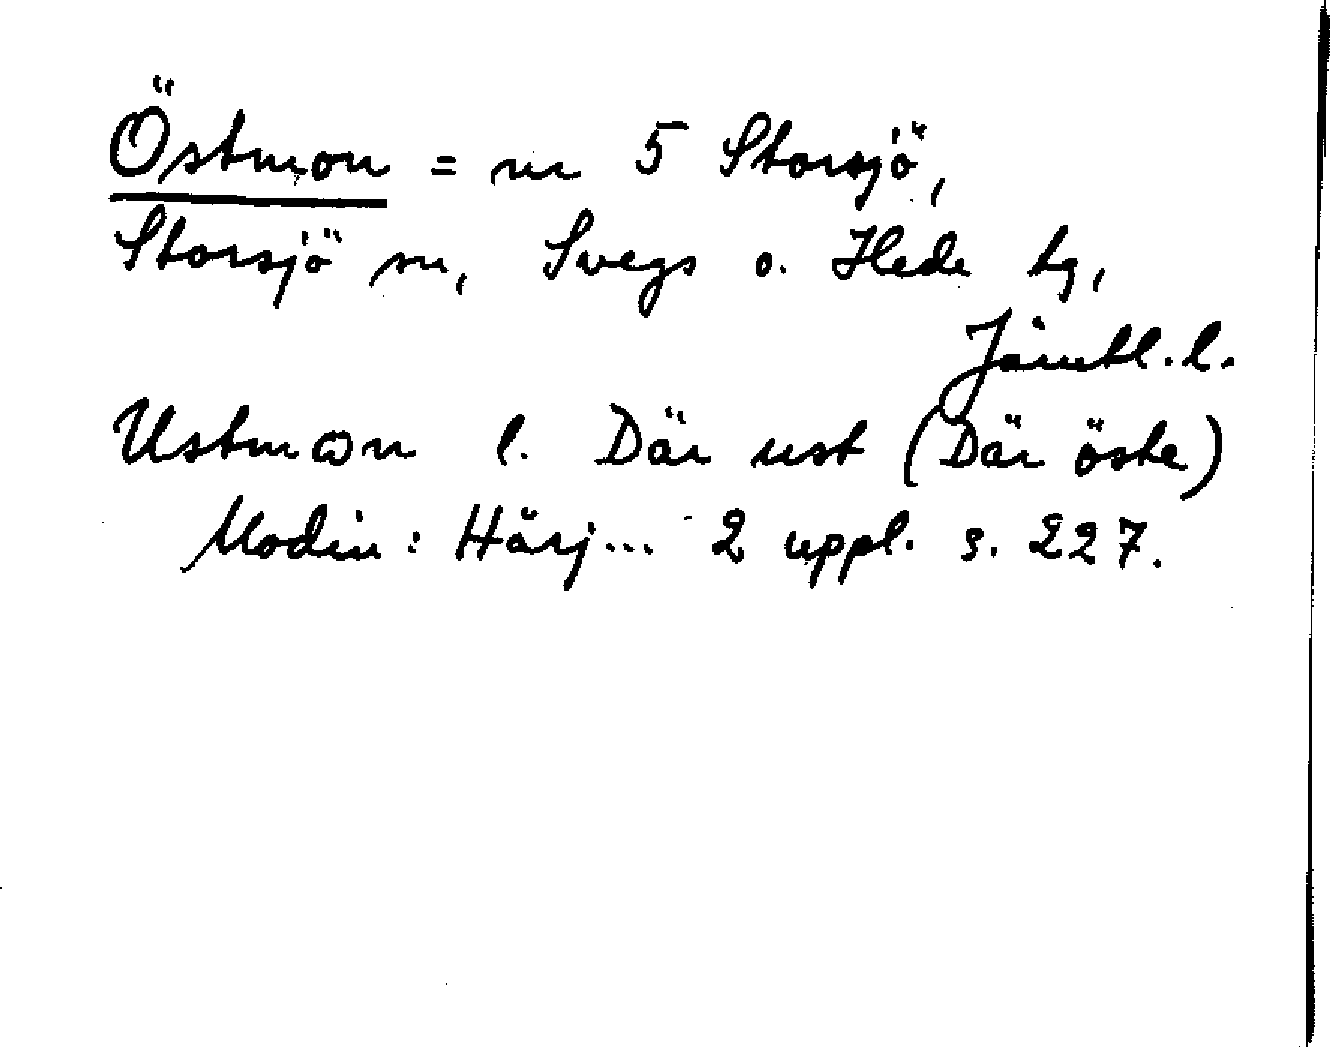 Östmon = nr 5 Storsjö,
Storsjö sn, Svegs o. Hede tg,
Jämtl. l.
Ustmon l. Där ust (Där öste)
Modin: Härj... 2 uppl. s. 227.